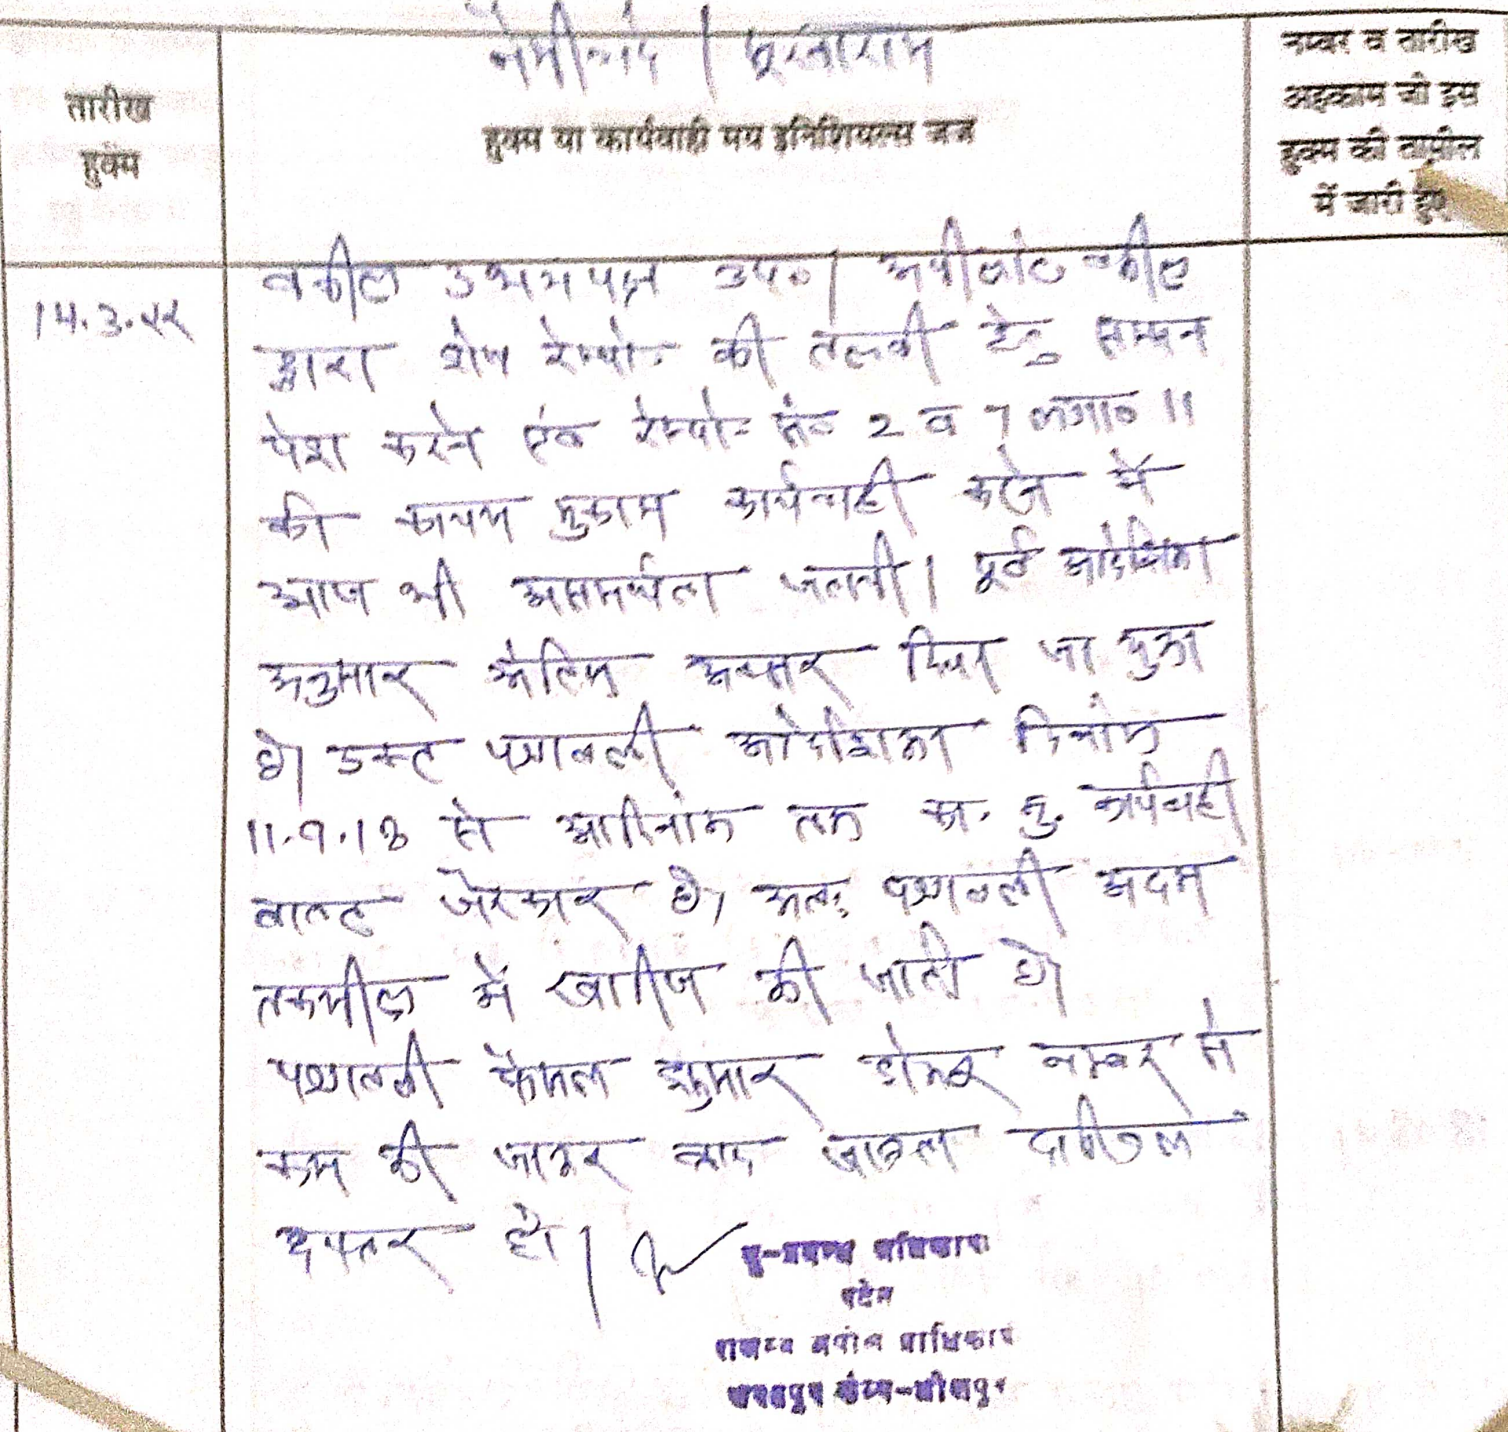 नेमीचंद / पूरनराम
तारीख
हुक्म
हुक्म या कार्यवाही मय इनिशियल्स जज
नम्बर व तारीख
अहकाम जो इस
हुक्म की तामील
में जारी हुए
14.3.22
वकील उभयपक्ष उप०। अपीलांट वकील
द्वारा शेष रेस्पो. की तलबी हेतु सम्मन
पेश करने एवं रेस्पो. सं० 2 व 7 लगा० 11
की कायम मुकाम कार्यवाही करने में
आज भी असमर्थता जतायी। पूर्व आदेशिका
अनुसार अंतिम अवसर दिया जा चुका
है। उक्त पत्रावली आदेशिका दिनांक
11.9.13 से आदिनांक तक का. मु. कार्यवाही
वास्ते जेरकार है। अतः पत्रावली अदम
तकमील में खारीज की जाती है।
पत्रावली फैसल शुमार होकर नम्बर से
कम की जाकर बाद जाब्ता दाखिल
दफ्तर हो।
भू-प्रबन्ध अधिकारी
पदेन
राजस्व अपील प्राधिकारी